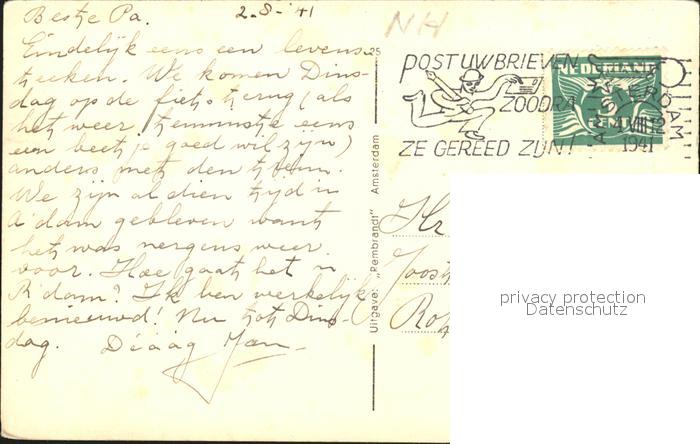 Beste Pa. 2-8-'41
Eindelijk eens een levens-
teeken. We komen Dins-
dag op de fiets terug (als
het weer tenminste eens
een beetje goed wil zijn)
anders met den trein.
We zijn al dien tijd in
A'dam gebleven want
het was nergens weer
voor. Hoe gaat het in
R'dam? Ik ben werkelijk
benieuwd! Nu tot Dins-
dag. Dáág Jan
NH
25
Uitgave: „Rembrandt" Amsterdam
POST UW BRIEVEN
ZOODRA
ZE GEREED ZIJN!
NEDERLAND
AMSTERDAM
4 VIII 12
1941
Hr
Joost
Rot
privacy protection
Datenschutz